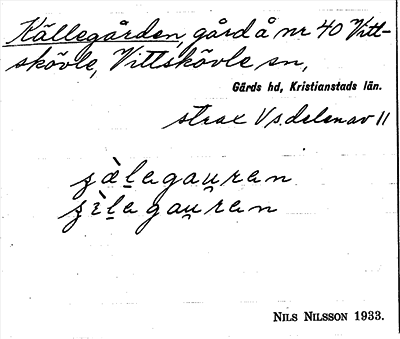 Källegården, gård å nr 40 Vitt-
skövle, Vittskövle sn,
Gärds hd, Kristianstads län.
strax V s. delen av 11
ʂɛ̀l̠agau̯ran
ʂìl̠agau̯ran
NILS NILSSON 1933.